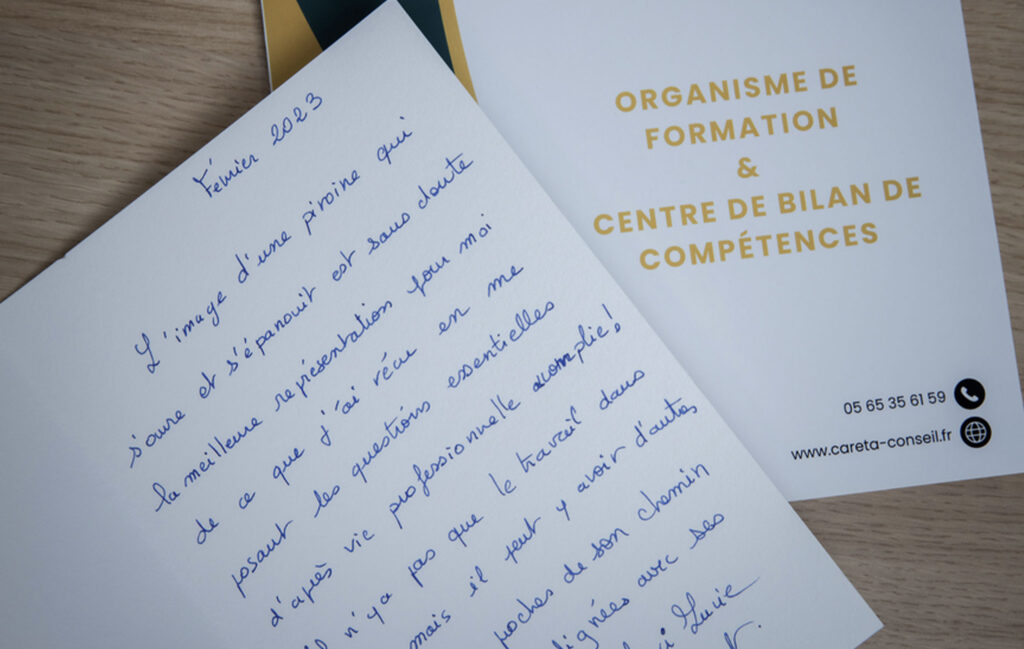 Février 2023
L'image d'une pivoine qui
s'ouvre et s'épanouit est sans doute
la meilleure représentation pour moi
de ce que j'ai vécu en me
posant les questions essentielles
d'après vie professionnelle accomplie!
n'y a pas que le travail dans
mais il peut y avoir d'autres
proches de son chemin
alignées avec ses
Lucie
ORGANISME DE
FORMATION
&
CENTRE DE BILAN DE
COMPÉTENCES
05 65 35 61 59
www.careta-conseil.fr